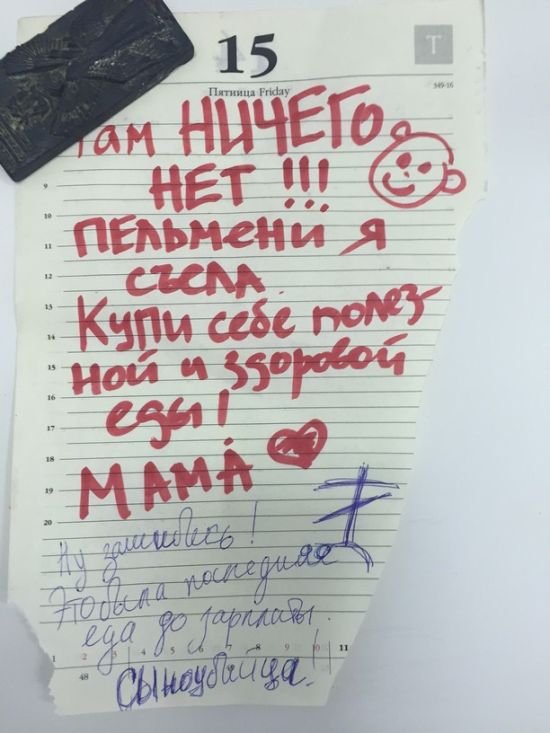 15
T
Пятница Friday
349-16
Там НИЧЕГО
НЕТ !!!
ПЕЛЬМЕНИ Я
СЪЕЛА
Купи себе полез-
ной и здоровой
еды!
МАМА
Ну зашибись!
Это была последняя
еда до зарплаты.
СЫНОУБИЙЦА!
9
10
11
12
13
14
15
16
17
18
19
20
1 2 3 4 5 6 7 8 9 10 11
48